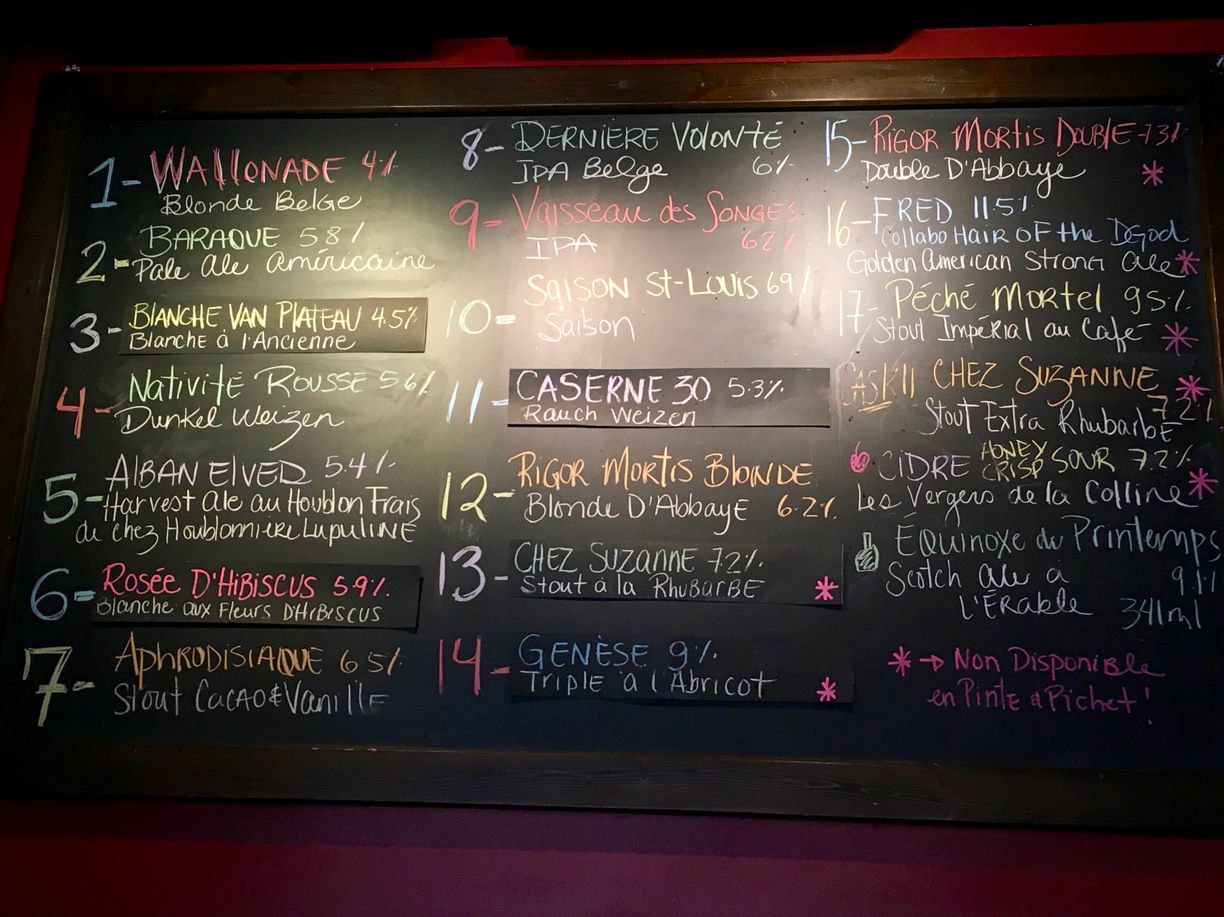 1- WALLONADE 4%
Blonde Belge
2- BARAQUE 5.8%
Pale Ale Américaine
3- BLANCHE VAN PLATEAU 4.5%
Blanche à l'Ancienne
4- Nativité Rousse 5.6%
Dunkel Weizen
5- ALBAN ELVED 5.4%
Harvest Ale au Houblon Frais
de chez Houblonnière Lupuline
6- Rosée D'Hibiscus 5.9%
Blanche aux Fleurs D'Hibiscus
7- APHRODISIAQUE 6.5%
Stout Cacao & Vanille
8- DERNIÈRE VOLONTÉ
IPA Belge 6%
9- Vaisseau des Songes
IPA 6.2%
10- Saison St-Louis 6.9%
Saison
11- CASERNE 30 5.3%
Rauch Weizen
12- Rigor Mortis Blonde
Blonde D'Abbaye 6.2%
13- CHEZ SUZANNE 7.2%
Stout à la Rhubarbe *
14- GENÈSE 9%
Triple à l'Abricot *
15- Rigor Mortis Double 7.3%
Double D'Abbaye *
16- FRED 11.5%
Collabo Hair of the Dgod
Golden American Strong Ale *
17- Péché Mortel 9.5%
Stout Impérial au Café *
CASK 11 CHEZ SUZANNE *
Stout Extra Rhubarbe 7.2%
CIDRE HONEY CRISP SOUR 7.2%
Les Vergers de la Colline *
Equinoxe du Printemps
Scotch Ale à 9.1%
L'Érable 341ml
* → Non Disponible
en Pinte & Pichet!